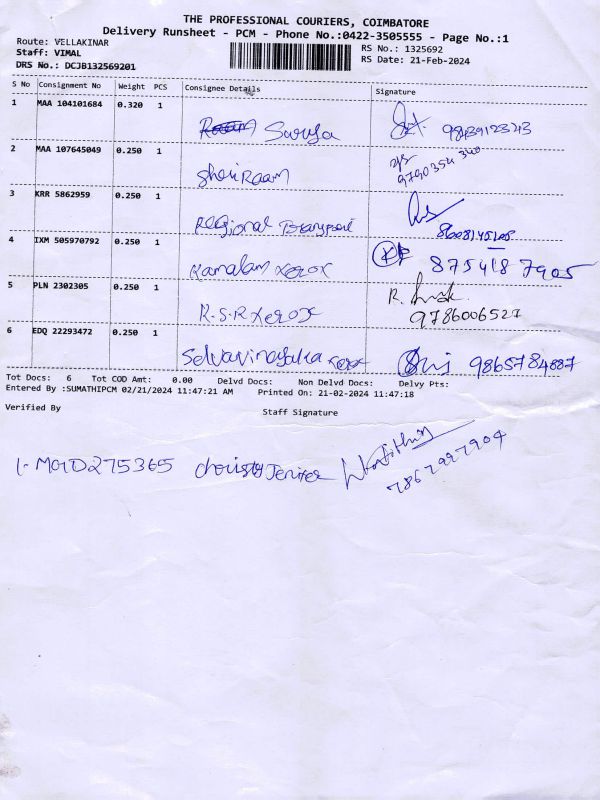 THE PROFESSIONAL COURIERS, COIMBATORE
Delivery Runsheet - PCM - Phone No.:0422-3505555 - Page No.:1
Route: VELLAKINAR
Staff: VIMAL
DRS No.: DCJB132569201
RS No.: 1325692
RS Date: 21-Feb-2024
S No Consignment No Weight PCS Consignee Details Signature
1 MAA 104101684 0.320 1 Surya
2 MAA 107645049 0.250 1 ShriRaam
3 KRR 5862959 0.250 1 Regional Transport
4 IXM 505970792 0.250 1 Kamalam xerox 875418 7905
5 PLN 2302305 0.250 1 R.S.R xerox 9786006527
6 EDQ 22293472 0.250 1 Selvavinayaka xerox
Tot Docs: 6 Tot COD Amt: 0.00 Delvd Docs: Non Delvd Docs: Delvy Pts:
Entered By :SUMATHIPCM 02/21/2024 11:47:21 AM Printed On: 21-02-2024 11:47:18
Verified By Staff Signature
275365 Christy Jenifer